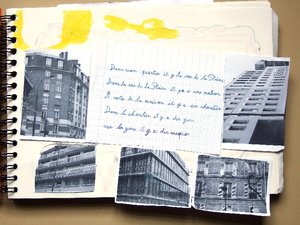 Dans mon quartier il y a la rue de la Plaine
Dans la rue de la Plaine il y a une maison
A coté de la maison il y a un chantier
Dans le chantier il y a des gens
les gens il y a des